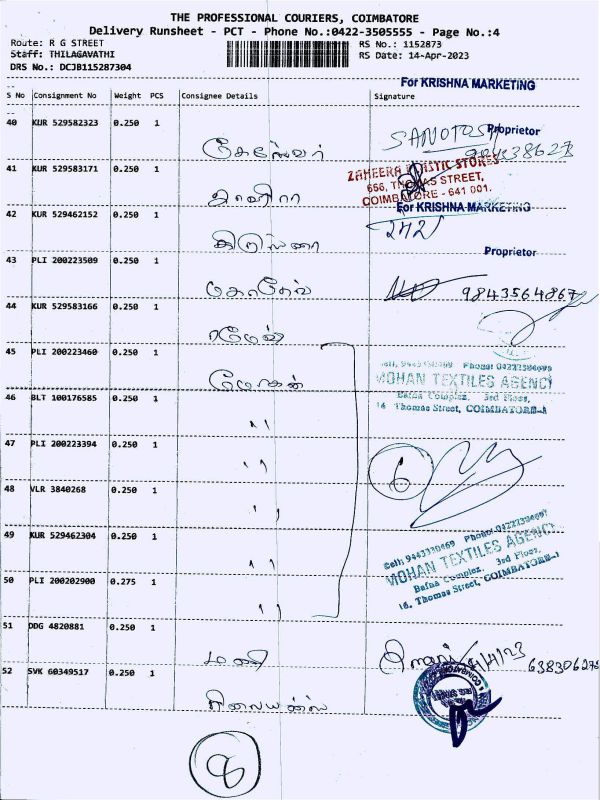 THE PROFESSIONAL COURIERS, COIMBATORE
Delivery Runsheet - PCT - Phone No.:0422-3505555 - Page No.:4
Route: R G STREET RS No.: 1152873
Staff: THILAGAVATHI RS Date: 14-Apr-2023
DRS No.: DCJB115287304
For KRISHNA MARKETING
S No Consignment No Weight PCS Consignee Details Signature
40 KUR 529582323 0.250 1 SANOTOSH Proprietor
41 KUR 529583171 0.250 1 ZAHEERA PLASTIC STORES
666, THOMAS STREET,
COIMBATORE - 641 001.
42 KUR 529462152 0.250 1 For KRISHNA MARKETING
242
கிருஷ்ணா
43 PLI 200223509 0.250 1 Proprietor
9843564867
44 KUR 529583166 0.250 1
ரமேஷ்
45 PLI 200223460 0.250 1 Cell: 9443330469 Phone: 04222304697
மோகன் MOHAN TEXTILES AGENCY
46 BLT 100176585 0.250 1 Bafna Complex, 3rd Floor,
16 Thomas Street, COIMBATORE-1
"
47 PLI 200223394 0.250 1
" 6
48 VLR 3840268 0.250 1
"
49 KUR 529462304 0.250 1 Cell: 9443330469 Phone: 04222304697
" MOHAN TEXTILES AGENCY
50 PLI 200202900 0.275 1 Bafna Complex, 3rd Floor,
16, Thomas Street, COIMBATORE-1
"
51 DDG 4820881 0.250 1
மணி 14/4/23
52 SVK 60349517 0.250 1
ரிலையன்ஸ்
8